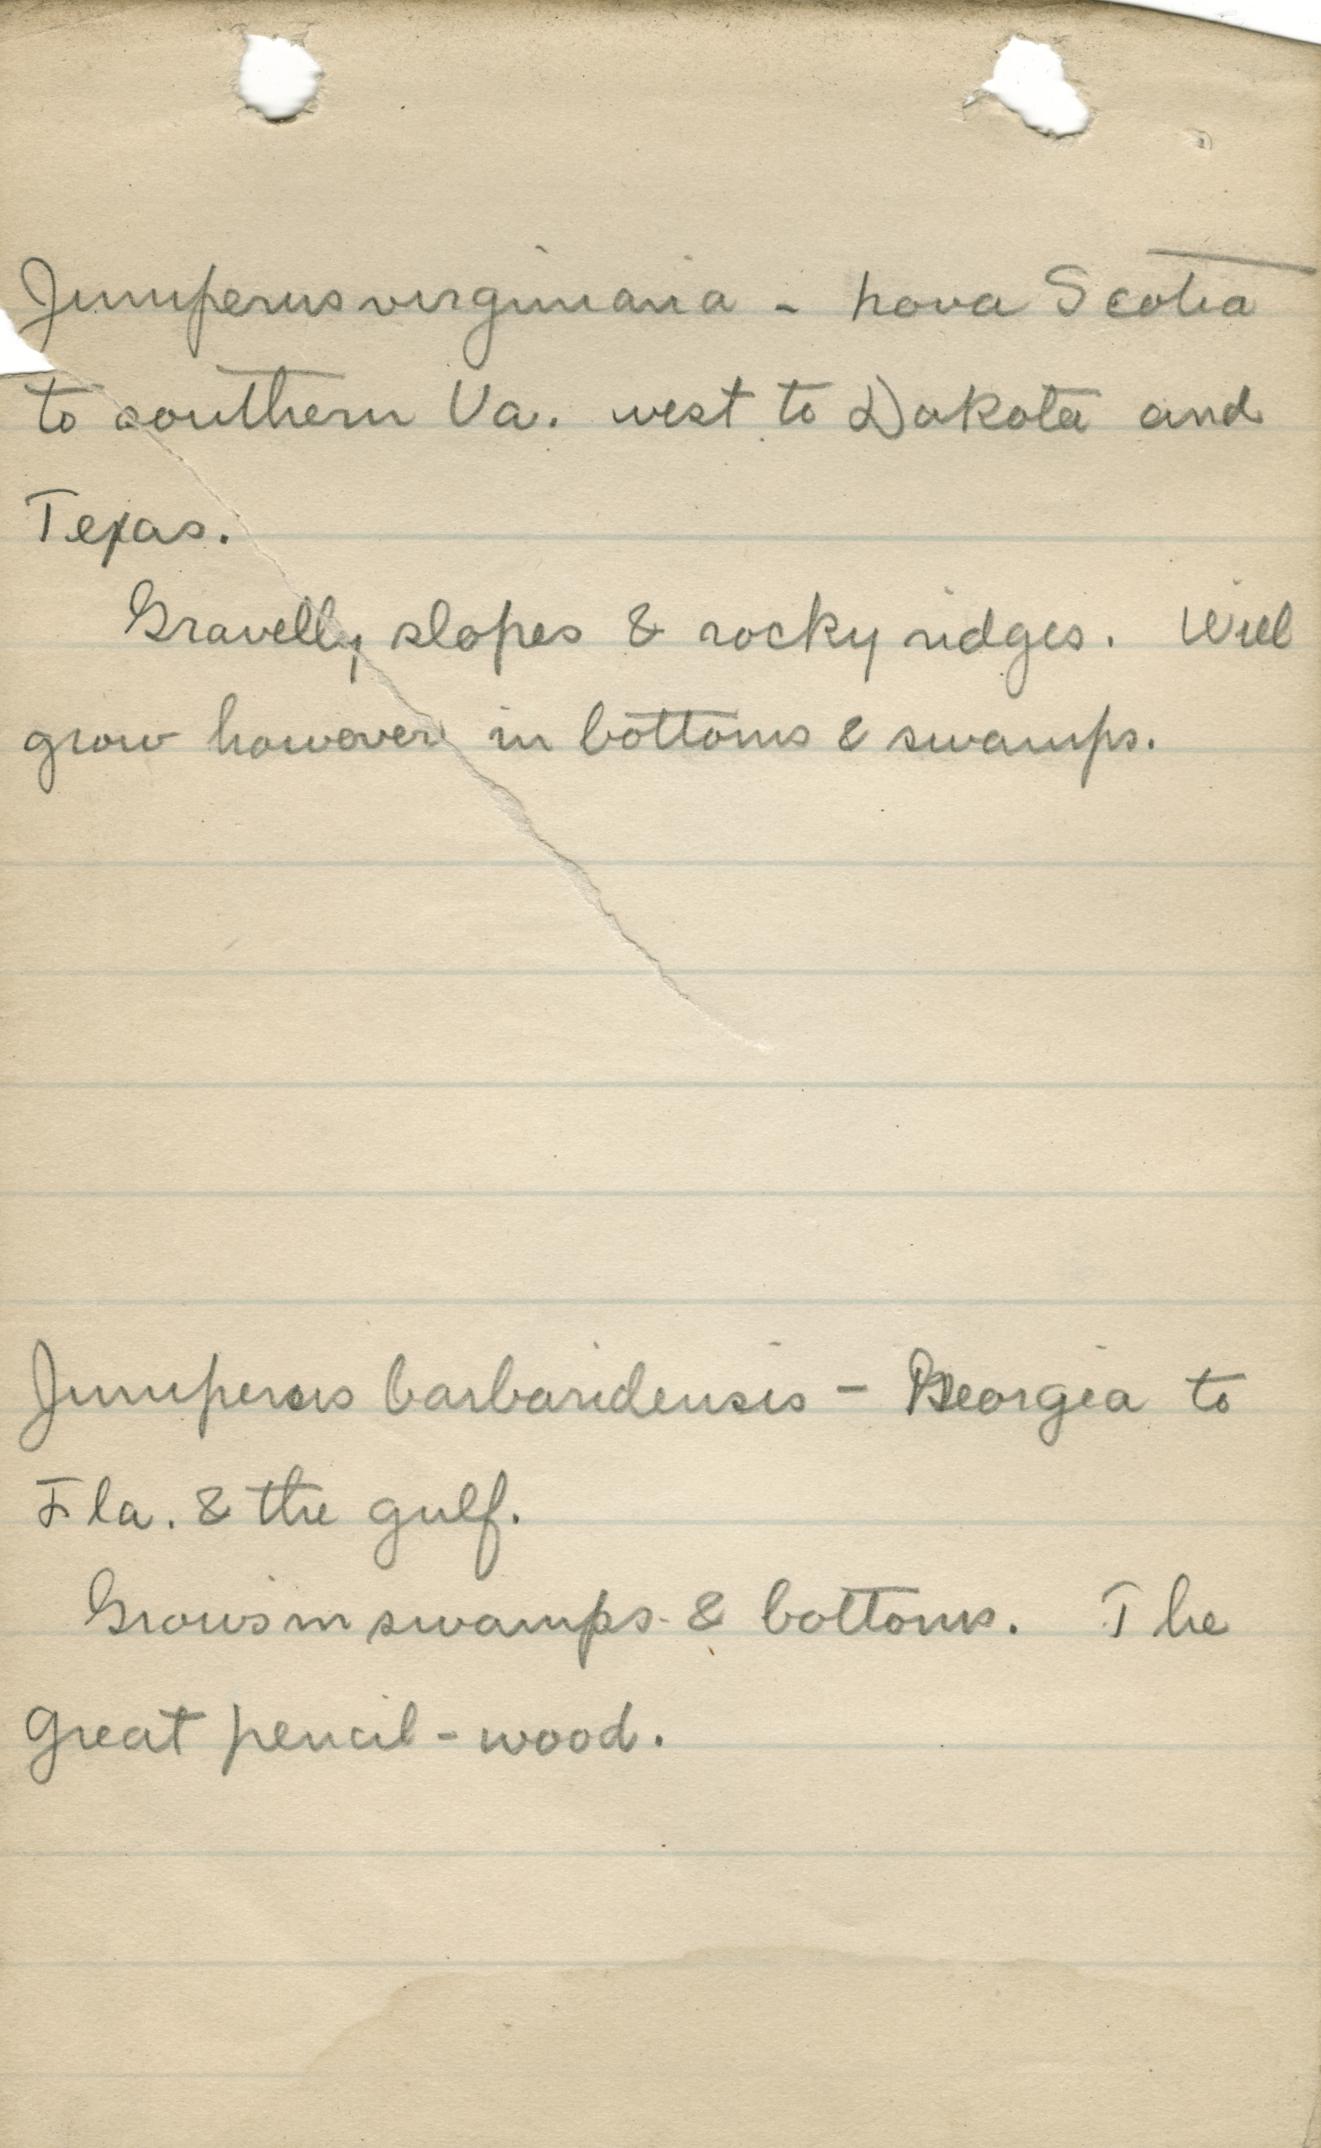 Juniperus virginiana - Nova Scotia
to southern Va. west to Dakota and
Texas.
Gravelly slopes & rocky ridges. Will
grow however in bottoms & swamps.
Juniperus barbaridensis - Georgia to
Fla. & the gulf.
Grows in swamps & bottoms. The
great pencil-wood.